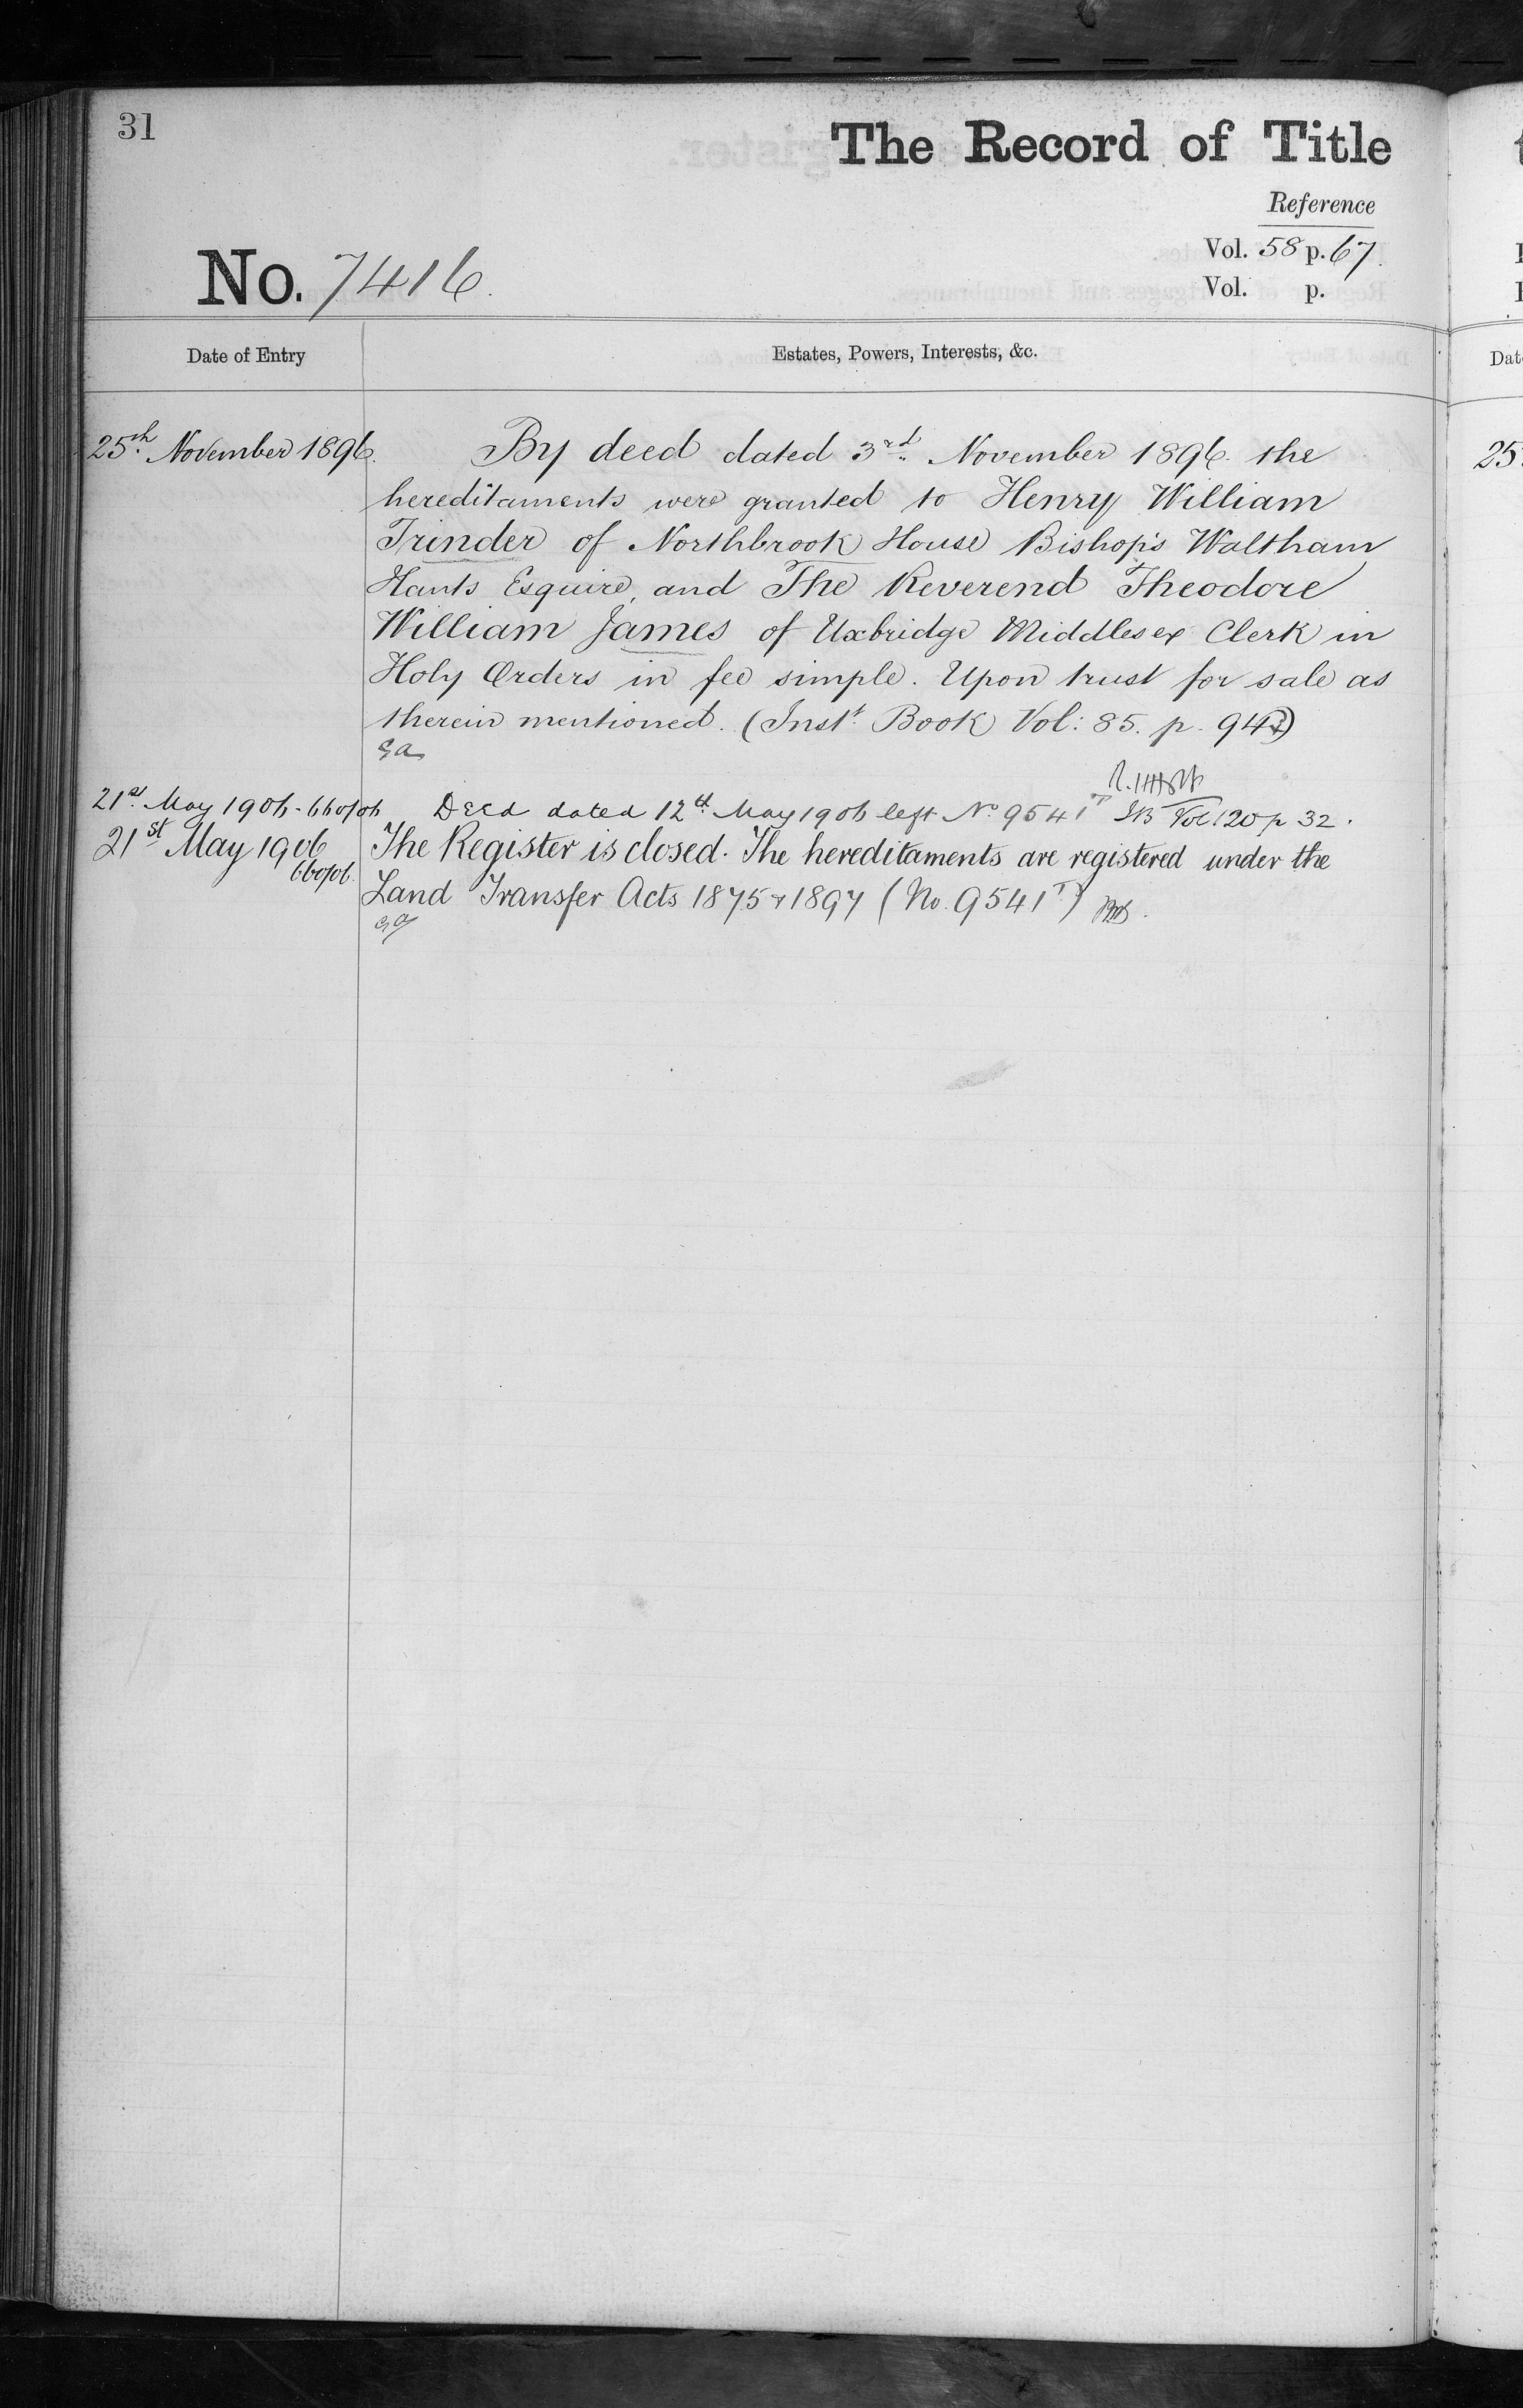 31
The Record of Title
Reference
Vol. 58 p. 67.
No. 7416.
Vol. p.
Date of Entry
Estates, Powers, Interests, &c.
25th November 1896.
By deed dated 3rd November 1896 the
hereditaments were granted to Henry William
Trinder of Northbrook House Bishop's Waltham
Hants Esquire, and The Reverend Theodore
William James of Uxbridge Middlesex Clerk in
Holy Orders in fee simple. Upon trust for sale as
therein mentioned. (Inst. Book Vol: 85. p. 94
21st May 1906
Deed dated 12th May 1906 left No 9541T IB Vol 120 p 32.
21st May 1906
The Register is closed. The hereditaments are registered under the
Land Transfer Acts 1875 & 1897 (No. 9541T)
Dat
25